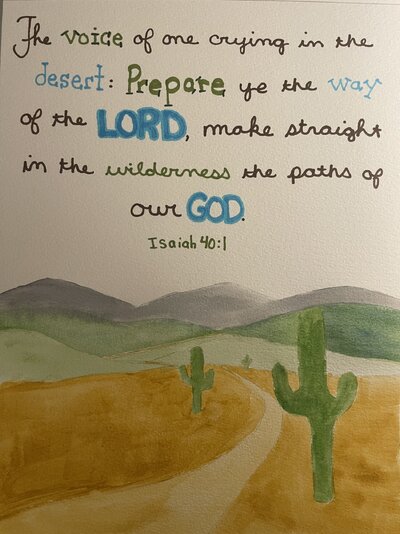 The voice of one crying in the
desert: Prepare ye the way
of the LORD, make straight
in the wilderness the paths of
our GOD.
Isaiah 40:1